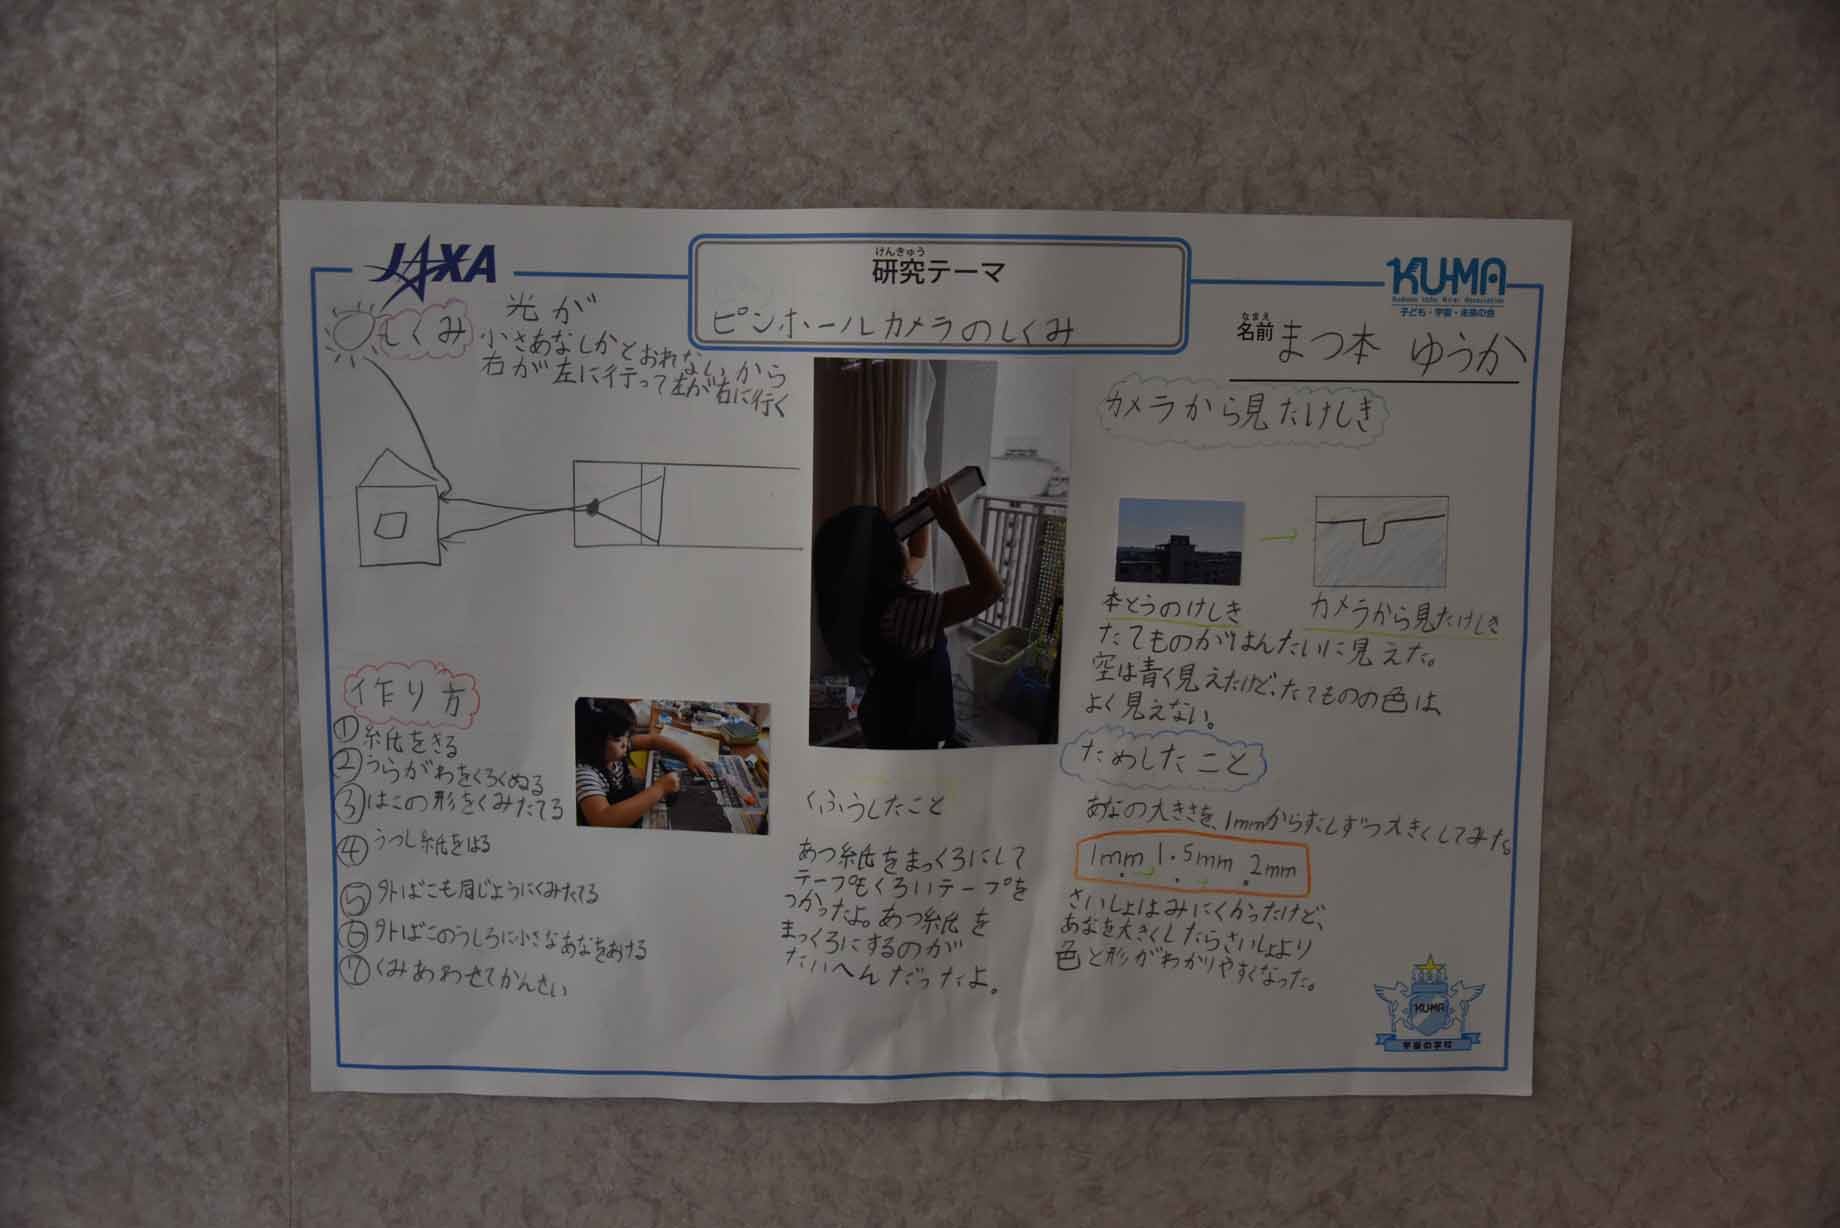 JAXA
けんきゅう
研究テーマ
ピンホールカメラのしくみ
KU-MA
子ども・宇宙・未来の会
なまえ
名前 まつ本 ゆうか
しくみ
光が
小さあなしかとおれないから
右が左に行って左が右に行く
作り方
①紙をきる
②うらがわをくろくぬる
③はこの形をくみたてる
④うつし紙をはる
⑤外ばこも同じようにくみたてる
⑥外ばこのうしろに小さなあなをあける
⑦くみあわせてかんせい
くふうしたこと
あつ紙をまっくろにして
テープもくろいテープを
つかったよ。あつ紙を
まっくろにするのが
たいへんだったよ。
カメラから見たけしき
本とうのけしき
カメラから見たけしき
たてものがはんたいに見えた。
空は青く見えたけど、たてものの色は、
よく見えない。
ためしたこと
あなの大きさを、1mmからすこしずつ大きくしてみた。
1mm 1.5mm 2mm
さいしょはみにくかったけど、
あなを大きくしたらさいしょより
色と形がわかりやすくなった。
KU-MA
宇宙の学校